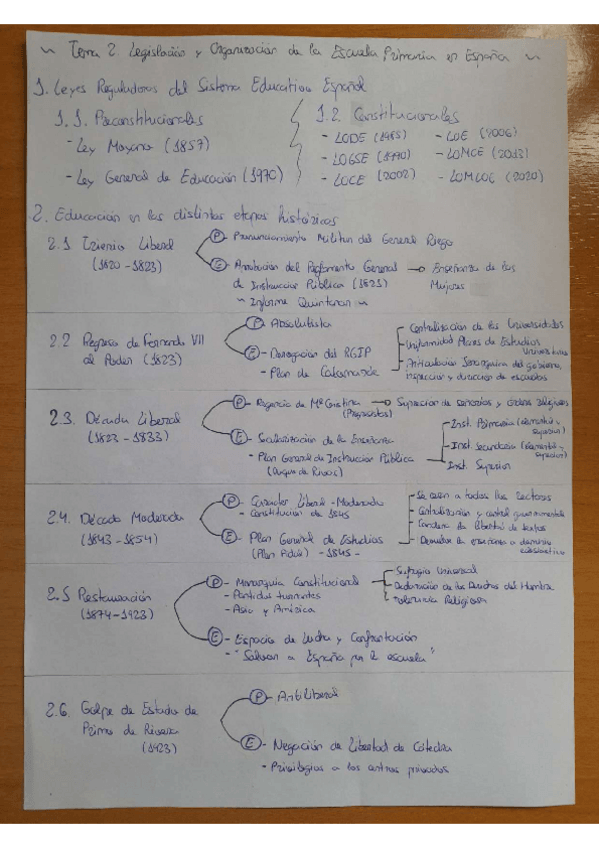 ~ Tema 2. Legislación y Organización de la Escuela Primaria en España ~
1. Leyes Reguladoras del Sistema Educativo Español
1.1. Preconstitucionales
- Ley Moyano (1857)
- Ley General de Educación (1970)
1.2. Constitucionales
- LODE (1985)
- LOGSE (1990)
- LOCE (2002)
- LOE (2006)
- LOMCE (2013)
- LOMLOE (2020)
2. Educación en las distintas etapas históricas
2.1 Trienio Liberal
(1820-1823)
P - Pronunciamiento Militar del General Riego
E - Aprobación del Reglamento General
de Instrucción Pública (1821)
~ Informe Quintana ~
→ Enseñanza de las
Mujeres
2.2 Regreso de Fernando VII
al Poder (1823)
P - Absolutista
E - Derogación del RGIP
- Plan de Calomarde
- Centralización de las Universidades
- Uniformidad Planes de Estudios
Universitarios
- Articulación Jerárquica del gobierno,
inspección y dirección de escuelas
2.3. Década Liberal
(1823-1833)
P - Regencia de Mª Cristina
(Progresistas)
→ Supresión de señoríos y órdenes religiosas
E - Secularización de la Enseñanza
- Plan General de Instrucción Pública
(Duque de Rivas)
- Inst. Primaria (elemental y
superior)
- Inst. Secundaria (elemental y
superior)
- Inst. Superior
2.4. Década Moderada
(1843-1854)
P - Carácter Liberal-Moderado
- Constitución de 1845
E - Plan General de Estudios
(Plan Pidal) - 1845 -
- Se crean a todos los sectores
- Centralización y control gubernamental
- Condena la libertad de textos
- la enseñanza a dominio
eclesiástico
2.5 Restauración
(1874-1923)
P - Monarquía Constitucional
- Partidos turnantes
- Asia y América
- Sufragio Universal
- Declaración de los Derechos del Hombre
- Tolerancia Religiosa
E - Espacio de Lucha y Confrontación
- "Salvar a España por la escuela"
2.6. Golpe de Estado de
Primo de Rivera
(1923)
P - Antiliberal
E - Negación de Libertad de Cátedra
- Privilegios a los centros privados